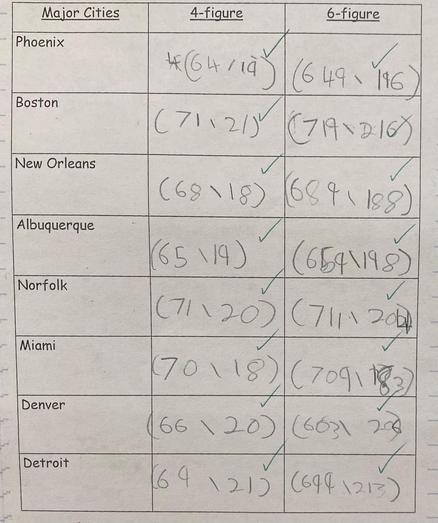 Major Cities 4-figure 6-figure
Phoenix (64 \ 19) (649 \ 196)
Boston (71 \ 21) (719 \ 216)
New Orleans (68 \ 18) (689 \ 188)
Albuquerque (65 \ 19) (659 \ 198)
Norfolk (71 \ 20) (711 \
Miami (70 \ 18) (709 \ 183)
Denver (66 \ 20)
Detroit (69 \ 21) (694 \ 213)